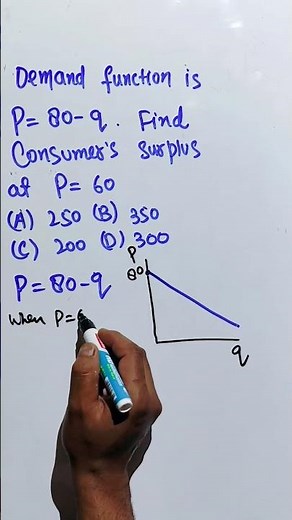 Demand function is
P = 80 - q. Find
Consumer's surplus
at P = 60
(A) 250 (B) 350
(C) 200 (D) 300
P = 80 - q
when P =
P
80
q